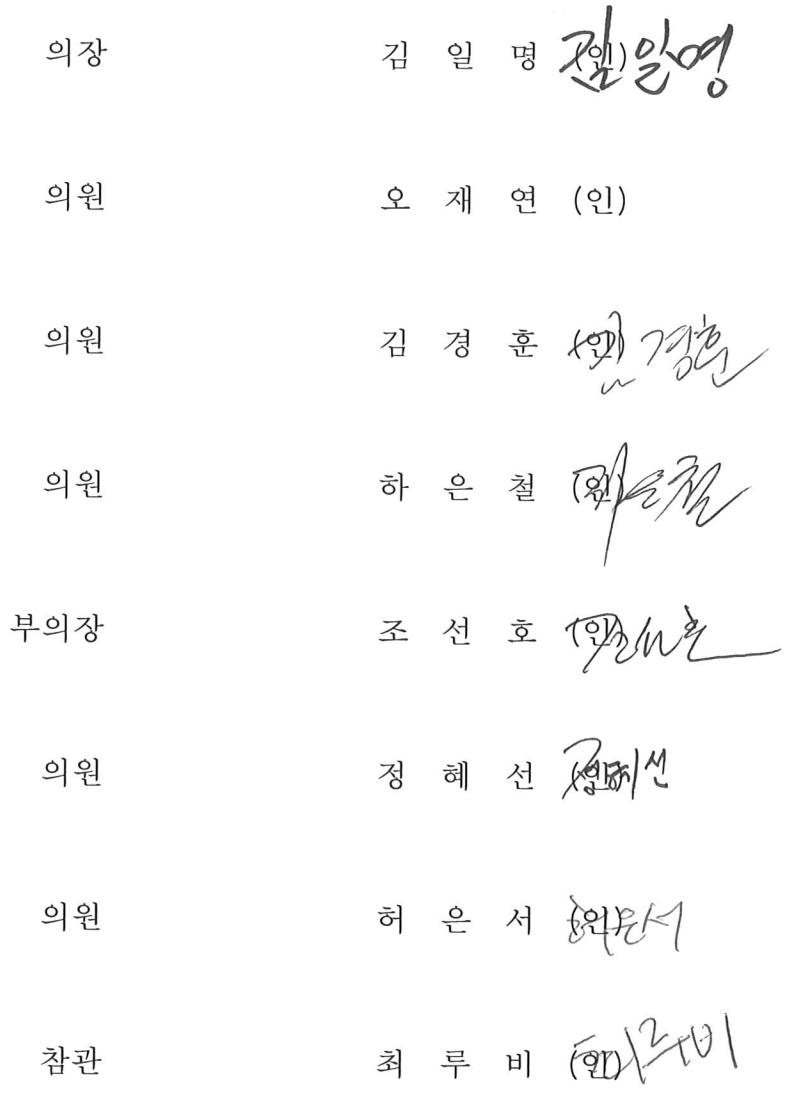 의장 김 일 명 (인) 김일명
의원 오 재 연 (인)
의원 김 경 훈 (인) 김경훈
의원 하 은 철 (인) 하은철
부의장 조 선 호 (인) 조선호
의원 정 혜 선 (인) 정혜선
의원 허 은 서 (인) 허은서
참관 최 루 비 (인) 최루비